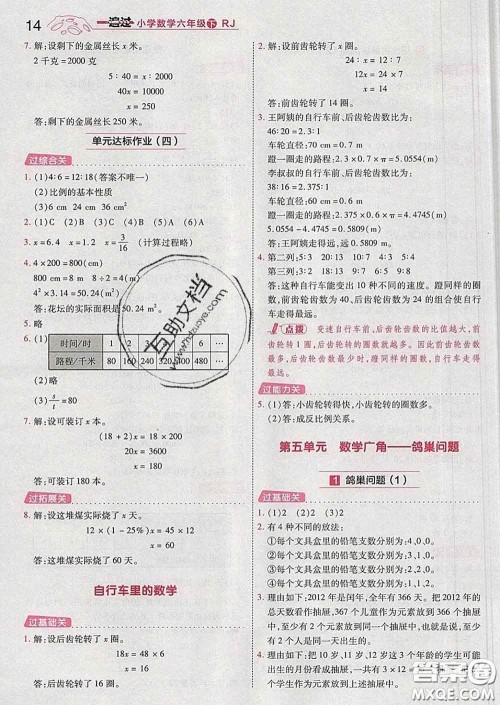 14 一遍过 小学数学六年级下 RJ
7. 解:设剩下的金属丝长 x 米。
2 千克=2000 克
5∶40=x∶2000
40x=10000
x=250
答:剩下的金属丝长 250 米。
单元达标作业(四)
过综合关
1. (1)4∶6=12∶18(答案不唯一)
(2)比例的基本性质
(3)6 cm 24 cm 36 cm²
2. (1)C (2)A (3)C (4)B
3. x=6.4 x=10.4 x=3/16 (计算过程略)
4. 4×200=800(cm)
800 cm=8 m 8÷2=4(m)
4²×3.14=50.24(m²)
答:花坛的实际面积是 50.24 m²。
5. 略
6. (1)
时间/时 1 2 3 4 5 6 …
路程/千米 80 160 240 320 400 480 …
(2)略
(3)s/t=80
7. 解:设可装订 x 本。
(18+2)x=18×200
20x=3600
x=180
答:可装订 180 本。
过拓展关
8. 解:设这堆煤实际烧了 x 天。
12x×(1-25%)=45×12
x=60
答:这堆煤实际烧了 60 天。
自行车里的数学
过基础关
1. 解:设后齿轮转了 x 圈。
18x=48×6
x=16
答:后齿轮转了 16 圈。
2. 解:设前齿轮转了 x 圈。
24x=12×7
24x=12×7
x=
答:前齿轮转了 圈。
3. 王阿姨的自行车前、后齿轮齿数比为:
46∶20=2.3∶1
车轮直径:70 cm=0.7 m
蹬一圈走的路程:2.3×0.7×π=5.0554(m)
李叔叔的自行车前、后齿轮齿数比为:
38∶16=2.375∶1
车轮直径:60 cm=0.6 m
蹬一圈走的路程:2.375×0.6×π=4.4745(m)
5.0554-4.4745=0.5809(m)
答:王阿姨走得远,远 0.5809 m。
4. 第二列:3∶2 2∶1 12∶5 3∶1
第三列:10∶3 8∶3 20∶9 2∶1 5∶3
答:这种自行车能变出 10 种不同的速度。蹬同样的圈数,前齿轮齿数为 40、后齿轮齿数为
的组合使自行车走得最远。
点拨 变速自行车前、后齿轮齿数的比值越大,前
齿轮转 1 圈,后齿轮转的圈数就越多。前齿轮齿数最
多,后齿轮齿数最少时,蹬同样的圈数,自行车走得
最远。
过能力关
5. (1)答:小齿轮转得快,小齿轮转的圈数多。
(2)答案略
第五单元 数学广角——鸽巢问题
1 鸽巢问题(1)
过基础关
1. (1)2 (2)2 (3)2
2. 有 4 种不同的放法:
①每个文具盒里的铅笔支数分别为4,0,0。
②每个文具盒里的铅笔支数分别为
③每个文具盒里的铅笔支数分别为
④每个文具盒里的铅笔支数分别为
3. 理由如下:2012 年是闰年,全年有 366 天。把 2012 年的
总天数看作抽屉,367 个儿童作为元素放到抽屉中,
4. 理由如下:把 10 岁,11 岁,12 岁三个年龄的学生可能
出生的月份看作抽屉,一共有 3×12=
个学生作为元素放到
互助文档
答案圈
MXQE.COM